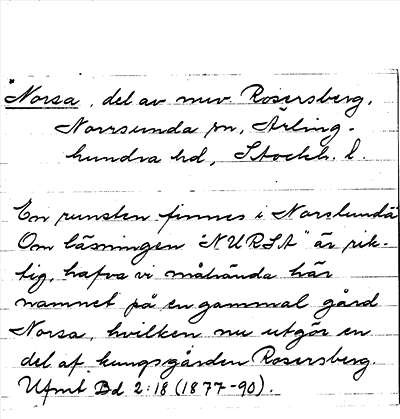 Norsa, del av nuv. Rosersberg,
Norrsunda sn, Ärling-
hundra hd, Stockh. l.
En runsten finnes i Norslunda
Om läsningen "NURSA" är rik-
tig, hafva vi måhända här
namnet på en gammal gård
Norsa, hvilken nu utgör en
del af kungsgården Rosersberg
Ufmt Bd 2:18 (1877-90).